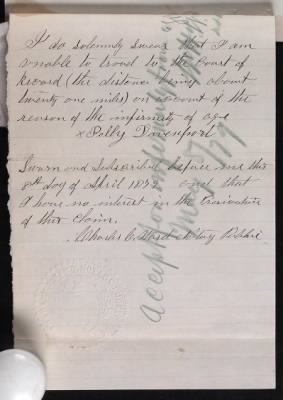 I do solemnly swear that I am
unable to travel to the Court of
Record (the distance being about
twenty one miles) on account of the
reason of the infirmity of age
x Polly Davenport
Sworn and Subscribed before me this
8th day of April 1879 and that
I have no interest in the
of this Claim.
Charles C. Notary Public